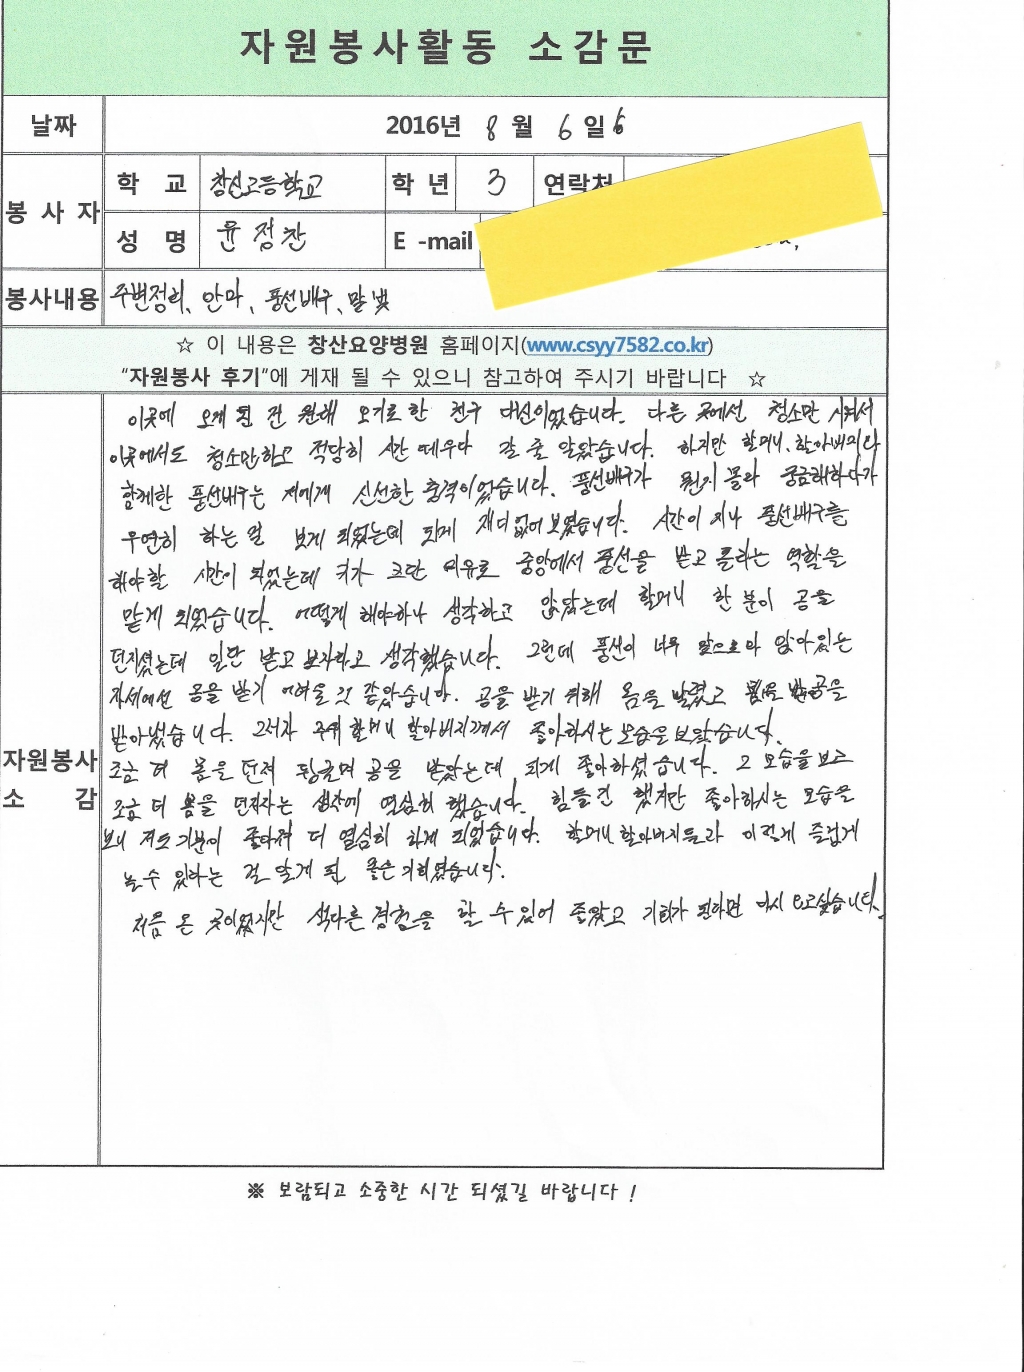 자원봉사활동 소감문
날짜 2016년 8 월 6 일 6
봉 사 자
학 교 창신고등학교 학 년 3 연락처
성 명 윤정찬 E -mail
봉사내용 주변정리, 안마, 풍선배구, 말벗
☆ 이 내용은 창산요양병원 홈페이지(www.csyy7582.co.kr)
“자원봉사 후기”에 게재 될 수 있으니 참고하여 주시기 바랍니다 ☆
자원봉사
소 감
이곳에 오게 된 건 원래 오기로 한 친구 대신이었습니다. 다른 곳에선 청소만 시켜서
이곳에서도 청소만하고 적당히 시간 떼우다 갈 줄 알았습니다. 하지만 할머니, 할아버지와
함께한 풍선배구는 저에게 신선한 충격이었습니다. 풍선배구가 뭔지 몰라 궁금해하다가
우연히 하는 걸 보게 되었는데 되게 재미없어보였습니다. 시간이 지나 풍선배구를
해야할 시간이 되었는데 키가 크단 이유로 중앙에서 풍선을 받고 올리는 역할을
맡게 되었습니다. 어떻게 해야하나 생각하고 앉았는데 할머니 한 분이 공을
던지셨는데 일단 받고 보자하고 생각했습니다. 그런데 풍선이 너무 앞으로와 앉아있는
자세에선 공을 받기 어려울 것 같았습니다. 공을 받기 위해 몸을 날렸고 공을
받아냈습니다. 그러자 주위 할머니 할아버지께서 좋아하시는 모습을 보았습니다.
조금 더 몸을 던져 뒹굴며 공을 받았는데 되게 좋아하셨습니다. 그 모습을 보고
조금 더 몸을 던지자는 생각에 열심히 했습니다. 힘들긴 했지만 좋아하시는 모습을
보니 저도 기분이 좋아져 더 열심히 하게 되었습니다. 할머니 할아버지들과 이렇게 즐겁게
놀 수 있다는 걸 알게 된 좋은 기회였습니다.
처음 온 곳이었지만 색다른 경험을 할 수 있어 좋았고 기회가 된다면 다시 오고싶습니다.
※ 보람되고 소중한 시간 되셨길 바랍니다 !